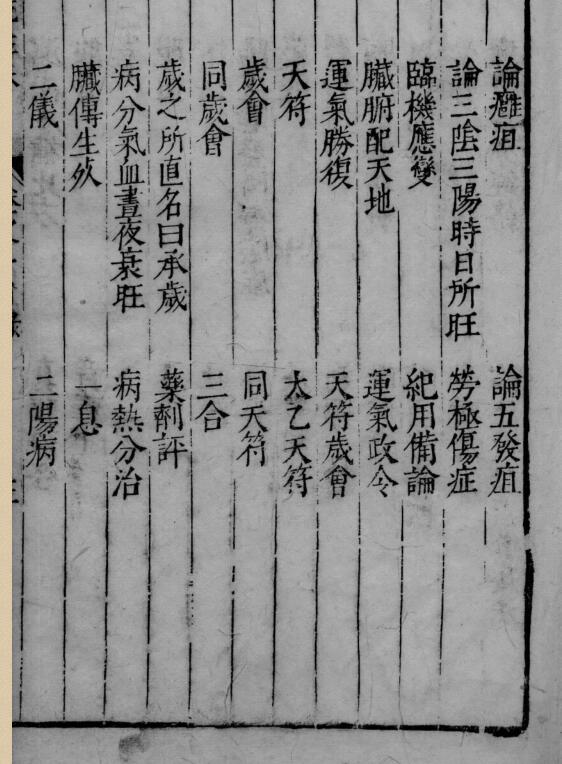 論癰疽 論五發疽
論三陰三陽時日所旺 勞極傷症
臨機應變 紀用備論
臟腑配天地 運氣政令
運氣勝復 天符歲會
天符 太乙天符
歲會 同天符
同歲會 三合
歲之所直名曰承歲 藥劑評
病分氣血晝夜衰旺 病熱分治
臟傳生死 一息
二儀 二陽病